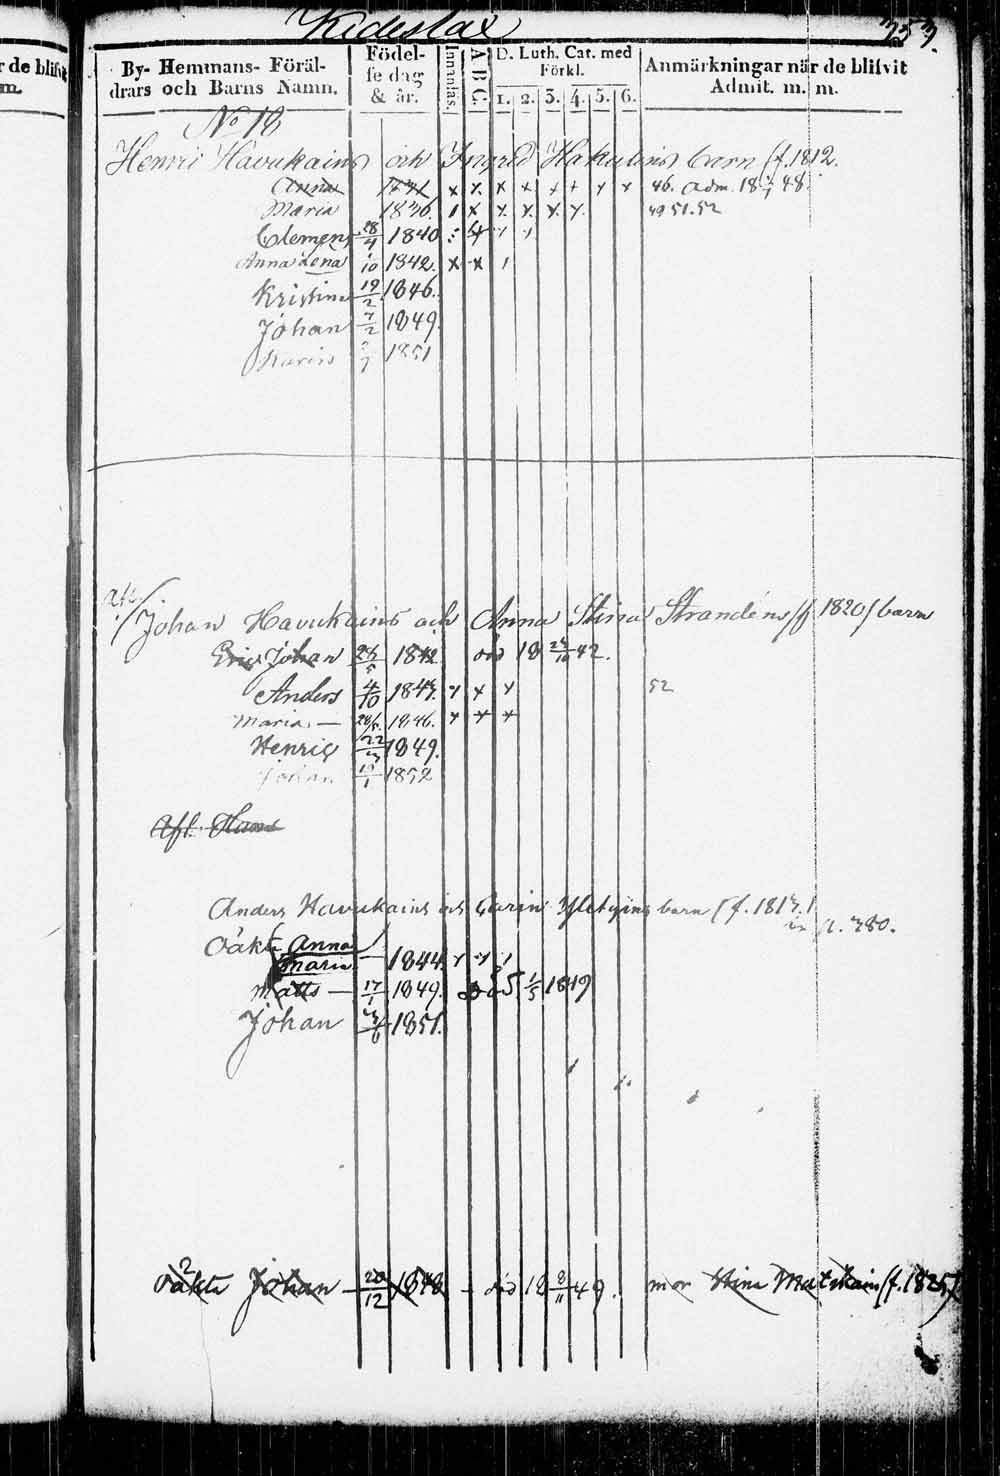 Kideslax 353.
r de blifvit
m.
By- Hemmans- Föräl-
drars och Barns Namn.
Födel-
se dag
& år.
Innanläs.
A B C.
D. Luth. Cat. med
Förkl.
1. 2. 3. 4. 5. 6.
Anmärkningar når de blifvit
Admit. m. m.
No 18
Henric Havukains och Ingrid Hakulins barn (f. 1812.
Anna 1831 x x x x x x x x 46. adm. 18 48.
Maria 1836. 1 x x x x x 49 51. 52
Clemens 28/4 1840
Anna Lena 1/10 1842. x x 1
Kristina 19/2 1846.
Johan 7/2 1849.
Karin 1851
Johan Havukains och Anna Stina Strandéns (f 1820) barn
Eric Johan 26/5 1842 död 18 24/10 42.
Anders 4/10 1843. x x x 52
Maria — 28/5 1846. x x x
Henric 22/3 1849.
Johan 19/1 1852
Afl. Hans
Anders Havukains och Carin Yletyins barn (f. 1813.)
in p. 380.
Oäkta Anna
Maria — 1844. x x 1
Matts — 17/1 1849. död 1/5 1849
Johan 3/6 1851.
Oäkta Johan — 20/12 1848 — död 18 8/11 49. mor Stina Matskain (f. 1825)